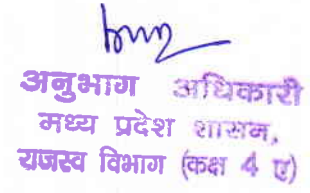 अनुभाग अधिकारी
मध्य प्रदेश शासन,
राजस्व विभाग (कक्ष 4 ए)